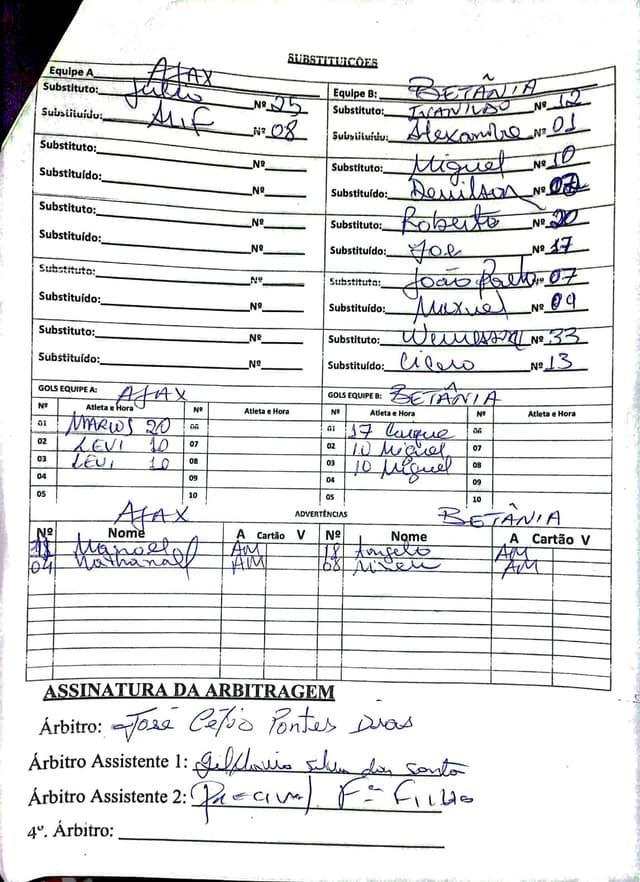 SUBSTITUIÇÕES
Equipe A AJAX
Substituto: Julio Nº 25
Substituído: ALIF Nº 08
Substituto: Nº
Substituído: Nº
Substituto: Nº
Substituído: Nº
Substituto: Nº
Substituído: Nº
Substituto: Nº
Substituído: Nº
Equipe B: BETÂNIA
Substituto: IVANILDO Nº 12
Substituído: Alexandre Nº 01
Substituto: Miguel Nº 10
Substituído: Denilson Nº
Substituto: Roberto Nº 20
Substituído: Joe Nº 17
Substituto: João Nº 07
Substituído: Maxuel Nº 09
Substituto: Nº 33
Substituído: Cicero Nº 13
GOLS EQUIPE A: AJAX
Nº Atleta e Hora Nº Atleta e Hora
01 MARCOS 20 06
02 LEVI 10 07
03 LEVI 10 08
04 09
05 10
GOLS EQUIPE B: BETÂNIA
Nº Atleta e Hora Nº Atleta e Hora
01 17 06
02 10 Miguel 07
03 10 Miguel 08
04 09
05 10
AJAX ADVERTÊNCIAS BETÂNIA
Nº Nome A Cartão V Nº Nome A Cartão V
Manoel AM 18 Angelo AM
04 Nathanael AM 08 AM
ASSINATURA DA ARBITRAGEM
Árbitro: José Célio Pontes Dias
Árbitro Assistente 1: silva dos santos
Árbitro Assistente 2: Fº FILHO
4º. Árbitro: